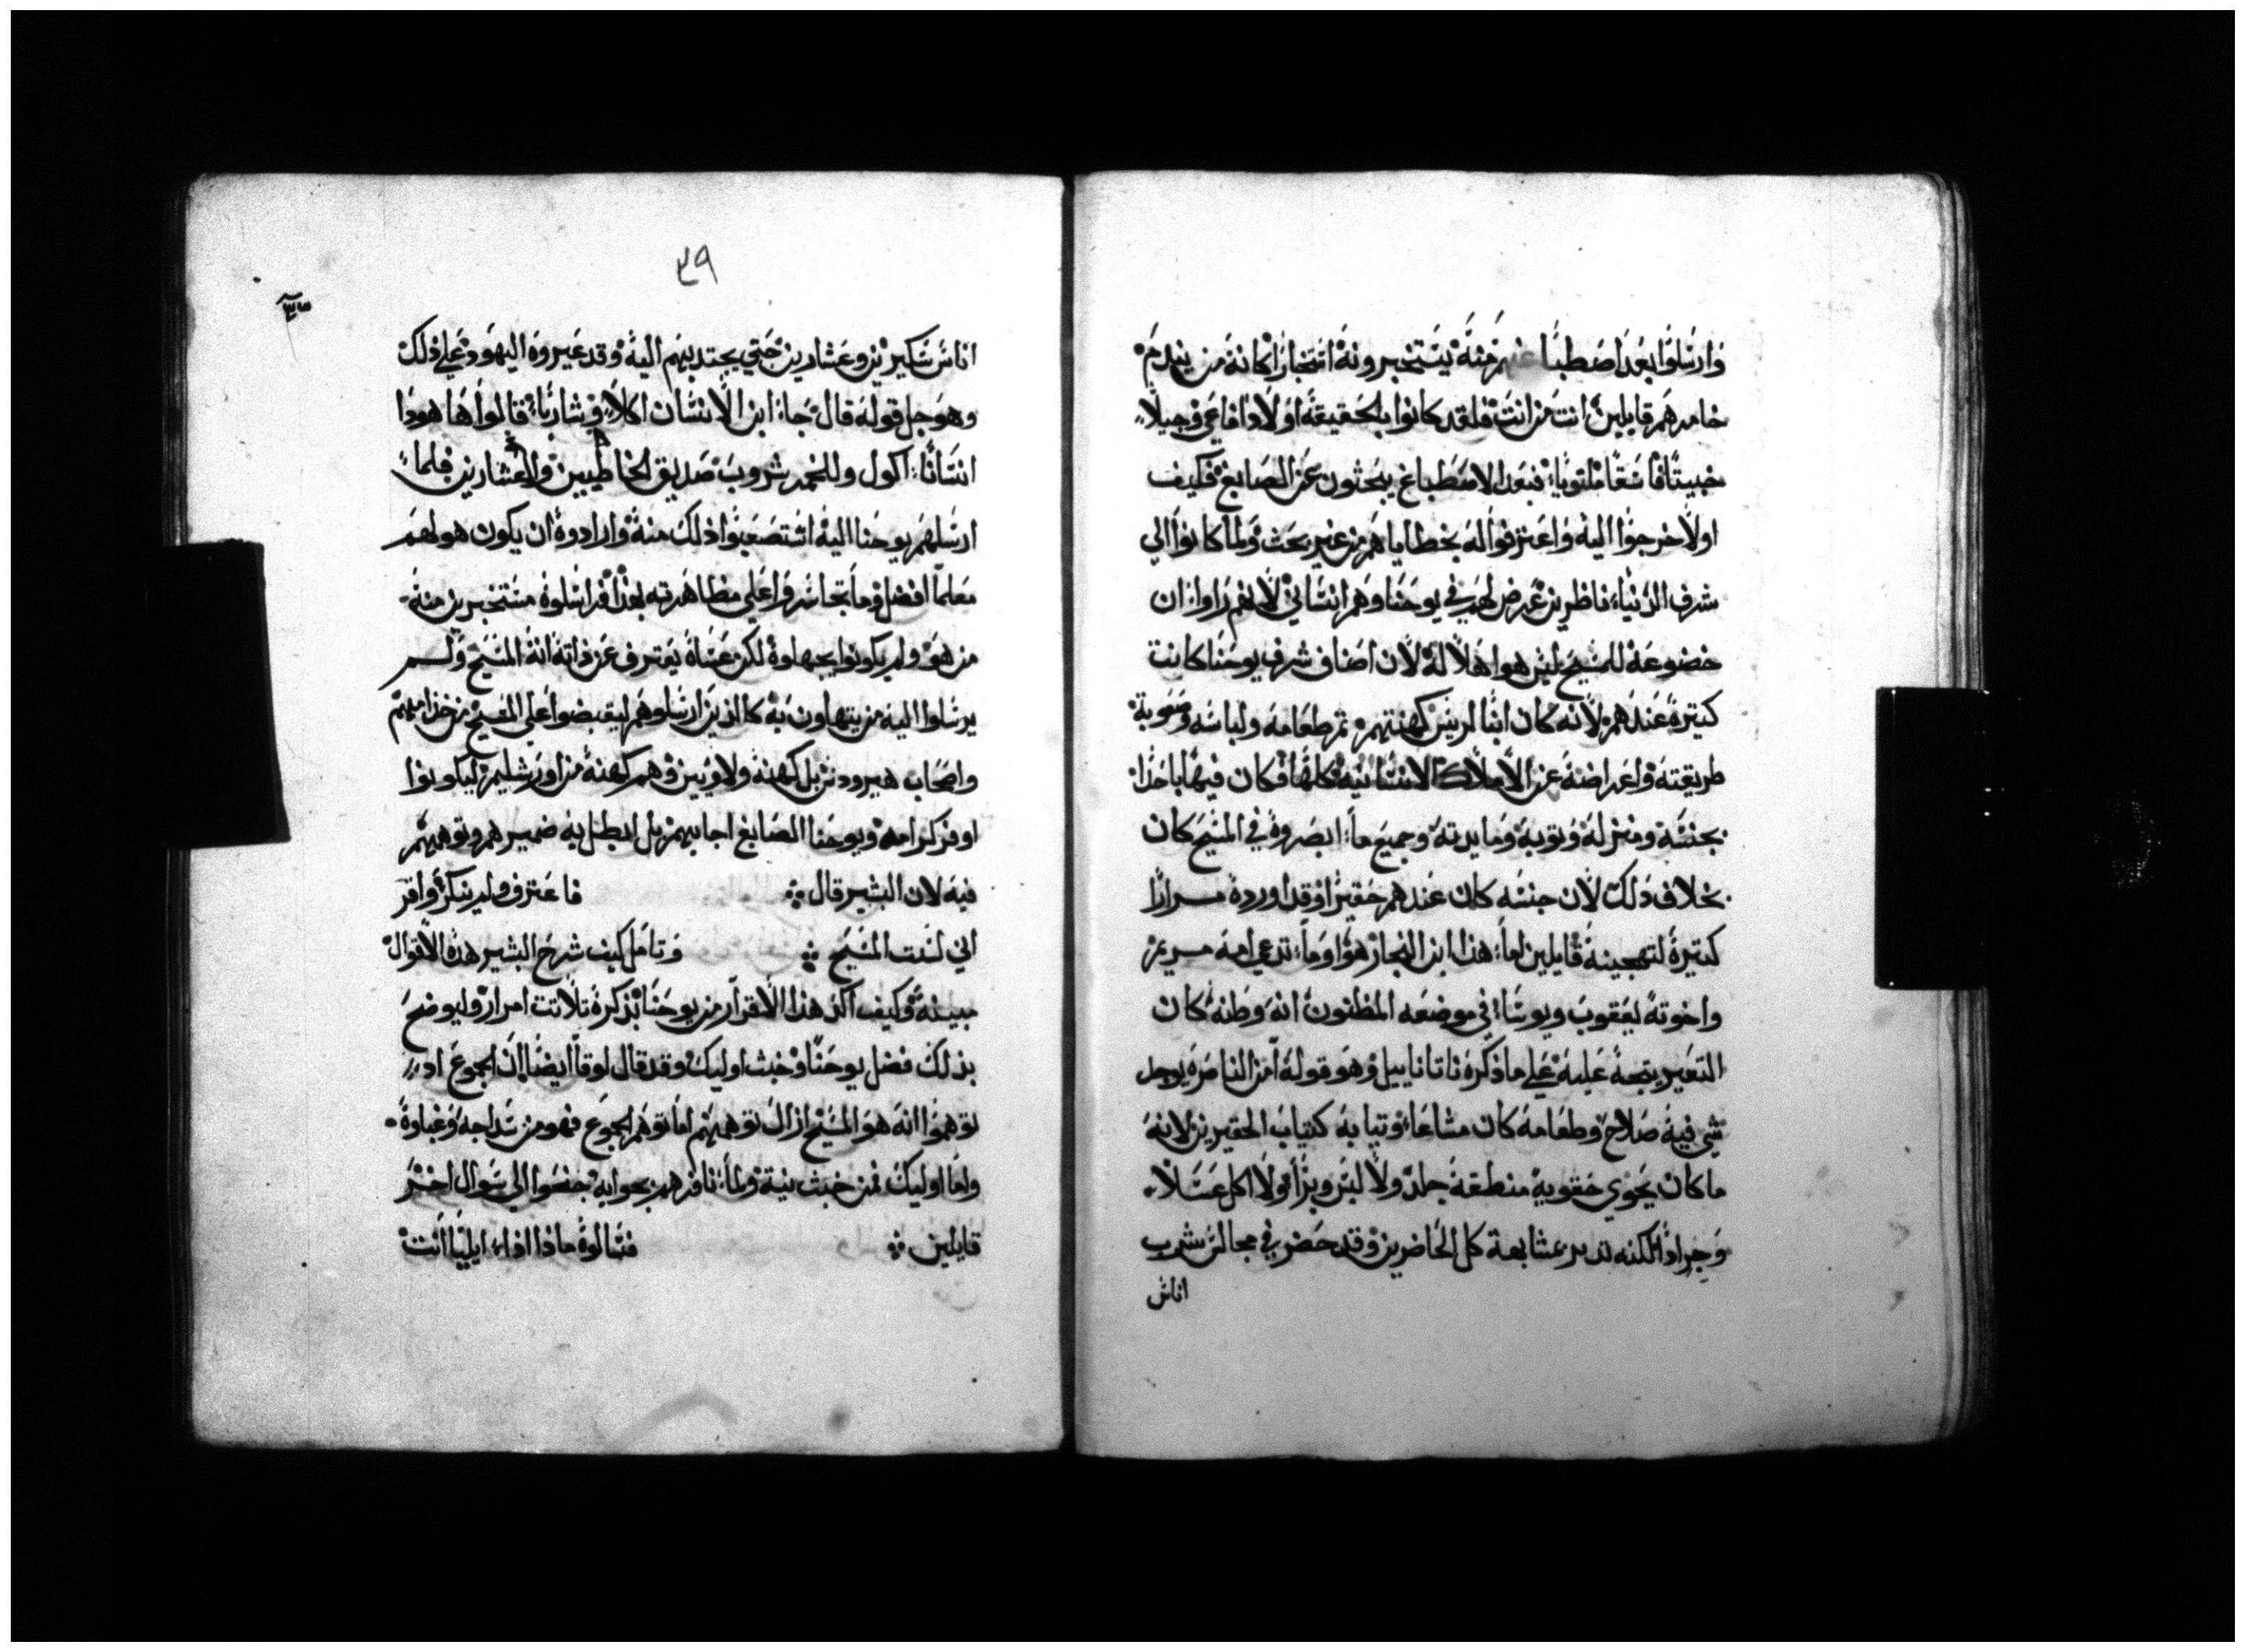 وارسلوا بعد اصطبا منه يستخبرونه استخبارا كانه من يندم
خامرهم قايلين انت من انت فلقد كانوا بالحقيقة اولاد افاعي وجيلا
خبيثا فاسقا ملتويا فبعد الاصطباغ يبحثون عن الصابغ فكيف
اولا خرجوا اليه واعترفوا له بخطاياهم من غير بحث ولما كانوا الي
شرف الدنيا ناظرين عرض لهم في يوحنا وهم انساني لانهم راوا ان
خضوعه للمسيح ليس هوا اهلا له لان اصناف شرف يوحنا كانت
كثيرة عندهم لانه كان ابنا لريس كهنتهم ثم طعامه ولباسه وصعوبة
طريقته واعراضه عن الاملاك الانسانية كلها فكان فيها باخذا
بجنسه ومنزله وثوبه ومايدته وجميع ما ابصروه في المسيح كان
بخلاف ذلك لان جنسه كان عندهم حقيرا وقد اورده مرارا
كثيرة لتهجينه قايلين اما هذا ابن النجار هوا وما تدعي امه مريم
واخوته يعقوب ويوسا في موضعه المظنون انه وطنه كان
التعيير يتجه عليه علي ما ذكره ناتاناييل وهو قوله امن الناصره يوجد
شي فيه صلاح وطعامه كان مشاعا وثيابه كثياب الحقيرين لانه
ما كان يحوي حقويه منطقة جلد ولا لبس وبرا ولا اكل عسلا
وجرادا لكنه تدبر عشابعة كل الحاضرين وقد حضر في مجالس شرب
اناس
٣٩
اناس سكيرين وعشارين حتي يجتدبهم اليه وقد عيروه اليهود علي ذلك
وهو جل قوله قال جا ابن الانسان اكلا وشاربا قالوا ها هودا
انسانا اكول وللخمر شروب صديق الخاطيين والعشارين فلما
ارسلهم يوحنا اليه استصعبوا ذلك منه وارادوه ان يكون هو لهم
معلما افضل وما تجاسروا علي مظاهرته بهذا فراسلوه مستخبرين منه
من هو ولم يكونوا يجهلوه لكن عساه يعترف عن ذاته انه المسيح ولم
يرسلوا اليه من يتهاون به كالذين ارسلوهم ليقبضوا علي المسيح من خدامهم
واصحاب هيرودس بل كهنة ولاويين وهم كهنة من اورشليم ليكونوا
اوفر كرامه ويوحنا الصابغ اجابهم بل ابطل به ضميرهم وتوهمهم
فيه لان البشير قال ܀ فاعترف ولم ينكر واقر
اني لست المسيح ܀ وتامل كيف شرح البشير هذه الاقوال
مبينة وكيف اكد هذا الاقرار من يوحنا بذكره تلاتت امرار وليوضح
بذلك فضل يوحنا وخبث اوليك وقد قال لوقا ايضا ان الجموع اد
توهموا انه هو المسيح ازال توهمهم اما توهم الجموع فهو من سداجه وغباوة
واما اوليك فمن خبث نية ولما نافرهم بجوابه جنسوا الي سوال اخر
قايلين ܀ فسالوه ماذا اذا ايليا انت